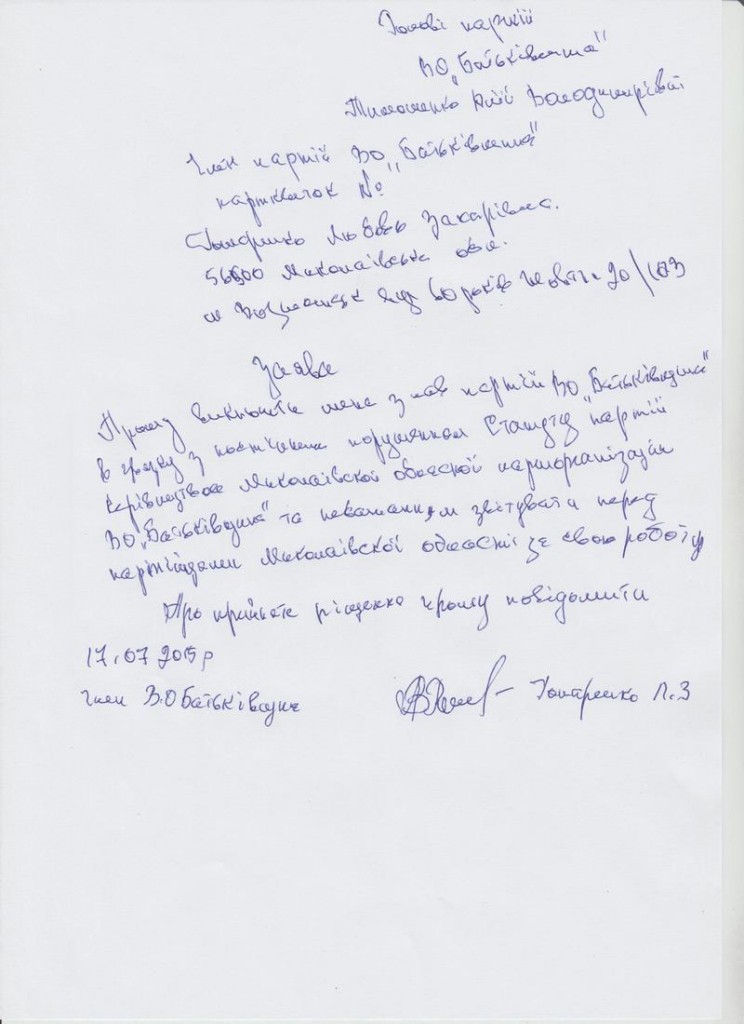 Голові партій
ВО „Батьківщина"
Тимошенко Юлії Володимирівні
Член партій ВО „Батьківщина"
партквиток №
Любовь Захарівна.
56500 Миколаївська обл.
м Вознесенск вул 60 років Жовтня 20/103
Заява
Прошу виключити мене з лав партій ВО „Батьківщина"
в звязку з постійним порушенням Статуту партій
керівництвом Миколаївской обласной парторганізацій
ВО „Батьківщина" та небажанням звітувати перед
партійцами Миколаївской області за свою роботу
Про прийняте рішення прошу повідомити
17.07 2015р
Член В.О Батьківщина
Л.З